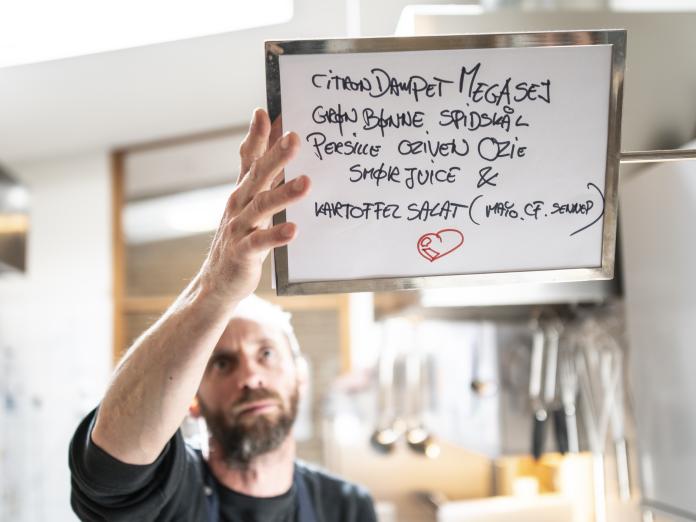 CITRONDAMPET MEGASEJ
GRØN BØNNE, SPIDSKÅL
PERSILLE OZIVEN OZIE
SMØR JUICE &
KARTOFFEL SALAT (MAYO. CF. SENNEP)